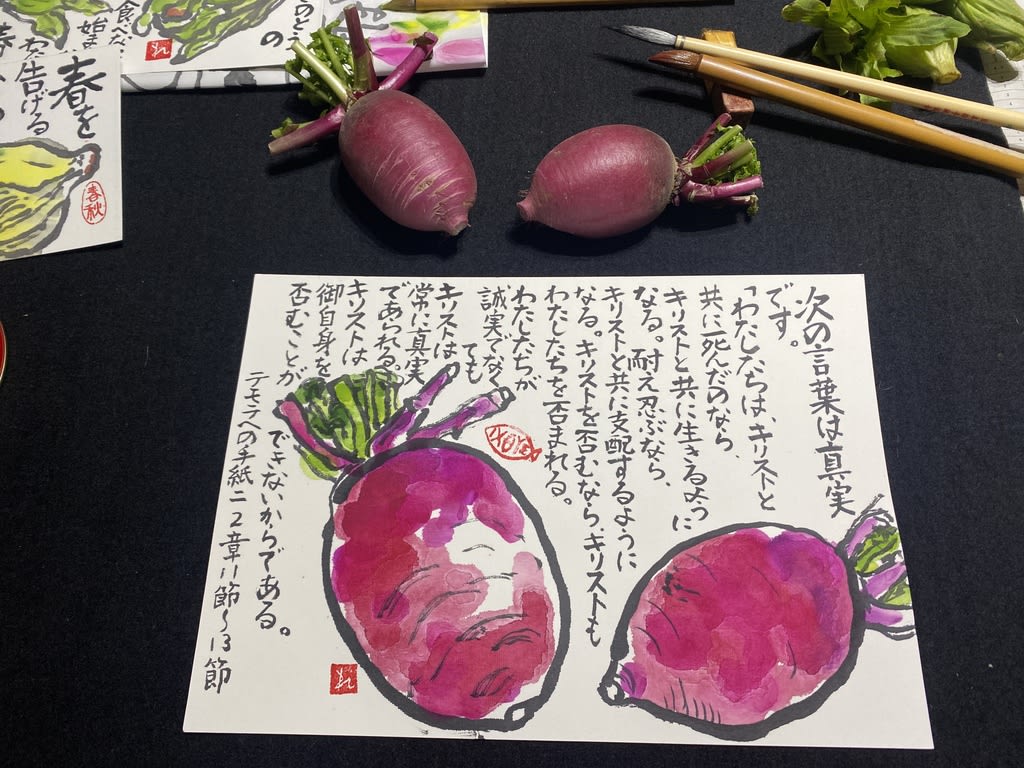 次の言葉は真実
です。
「わたしたちは、キリストと
共に死んだのなら、
キリストと共に生きるように
なる。耐え忍ぶなら、
キリストと共に支配するように
なる。キリストを否むなら、キリストも
わたしたちを否まれる。
わたしたちが
誠実でなく
ても
キリストは
常に真実
であられる。
キリストは
御自身を
否むことが
できないからである。
テモテへの手紙二 2章11節〜13節
春を
告げる
春秋
食べだ
始ま
の